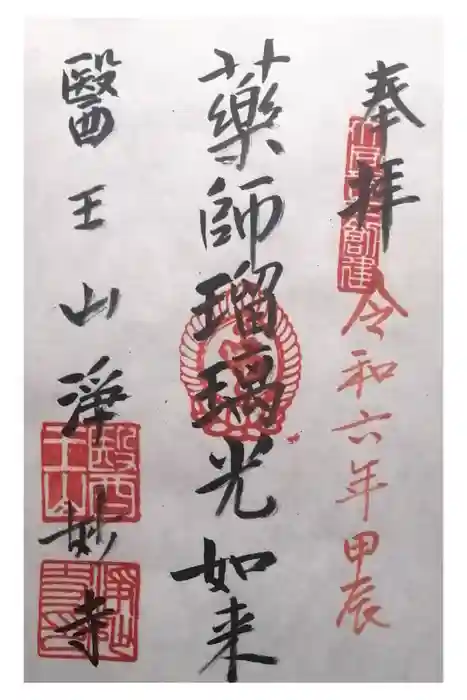 奉拝
令和六年甲辰
藥師瑠璃光如来
醫王山淨妙寺